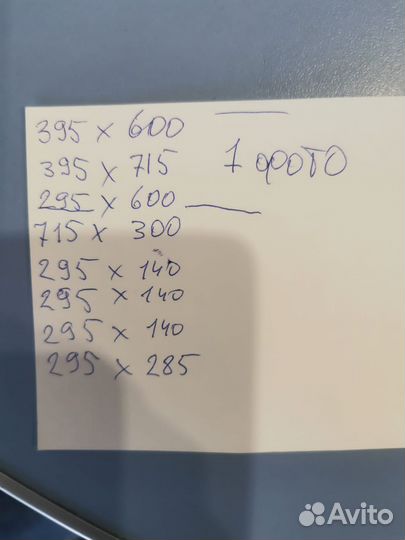 395 x 600
395 x 715
1 фото
295 x 600
715 x 300
295 x 140
295 x 140
295 x 140
295 x 285
Avito